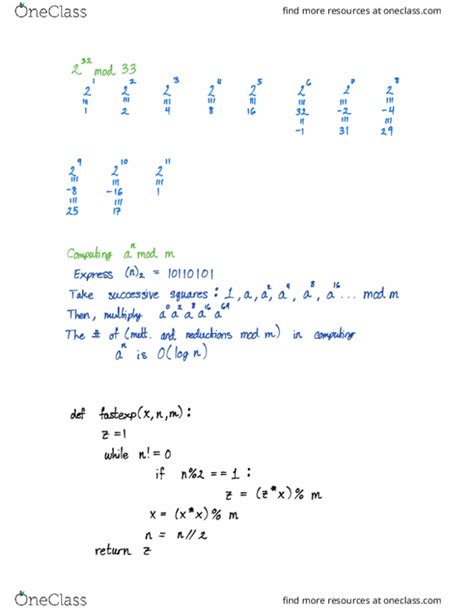 OneClass
find more resources at oneclass.com
2^32 mod 33
2^1 2^2 2^3 2^4 2^5 2^6 2^7 2^8
≡ ≡ ≡ ≡ ≡ ≡ ≡ ≡
1 2 4 8 16 32 -2 -4
≡ ≡ ≡
-1 31 29
2^9 2^10 2^11
≡ ≡ ≡
-8 -16 1
≡ ≡
25 17
Computing a^n mod m
Express (n)₂ = 10110101
Take successive squares : 1, a, a^2, a^4, a^8, a^16 ... mod m
Then, multiply a^0 a^2 a^8 a^16 a^64
The # of (mult. and reductions mod m) in computing
a^n is O(log n)
def fastexp(x,n,m):
z=1
while n!=0
if n%2 == 1 :
z = (z*x)% m
x = (x*x)% m
n = n//2
return z
OneClass
find more resources at oneclass.com